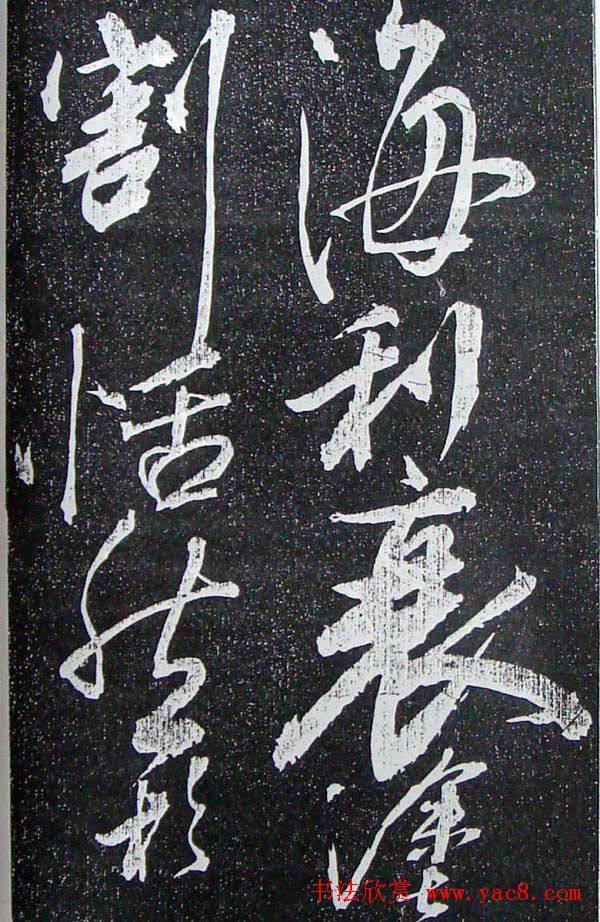 海利衰塗
割恬然形
书法欣赏 www.yac8.com